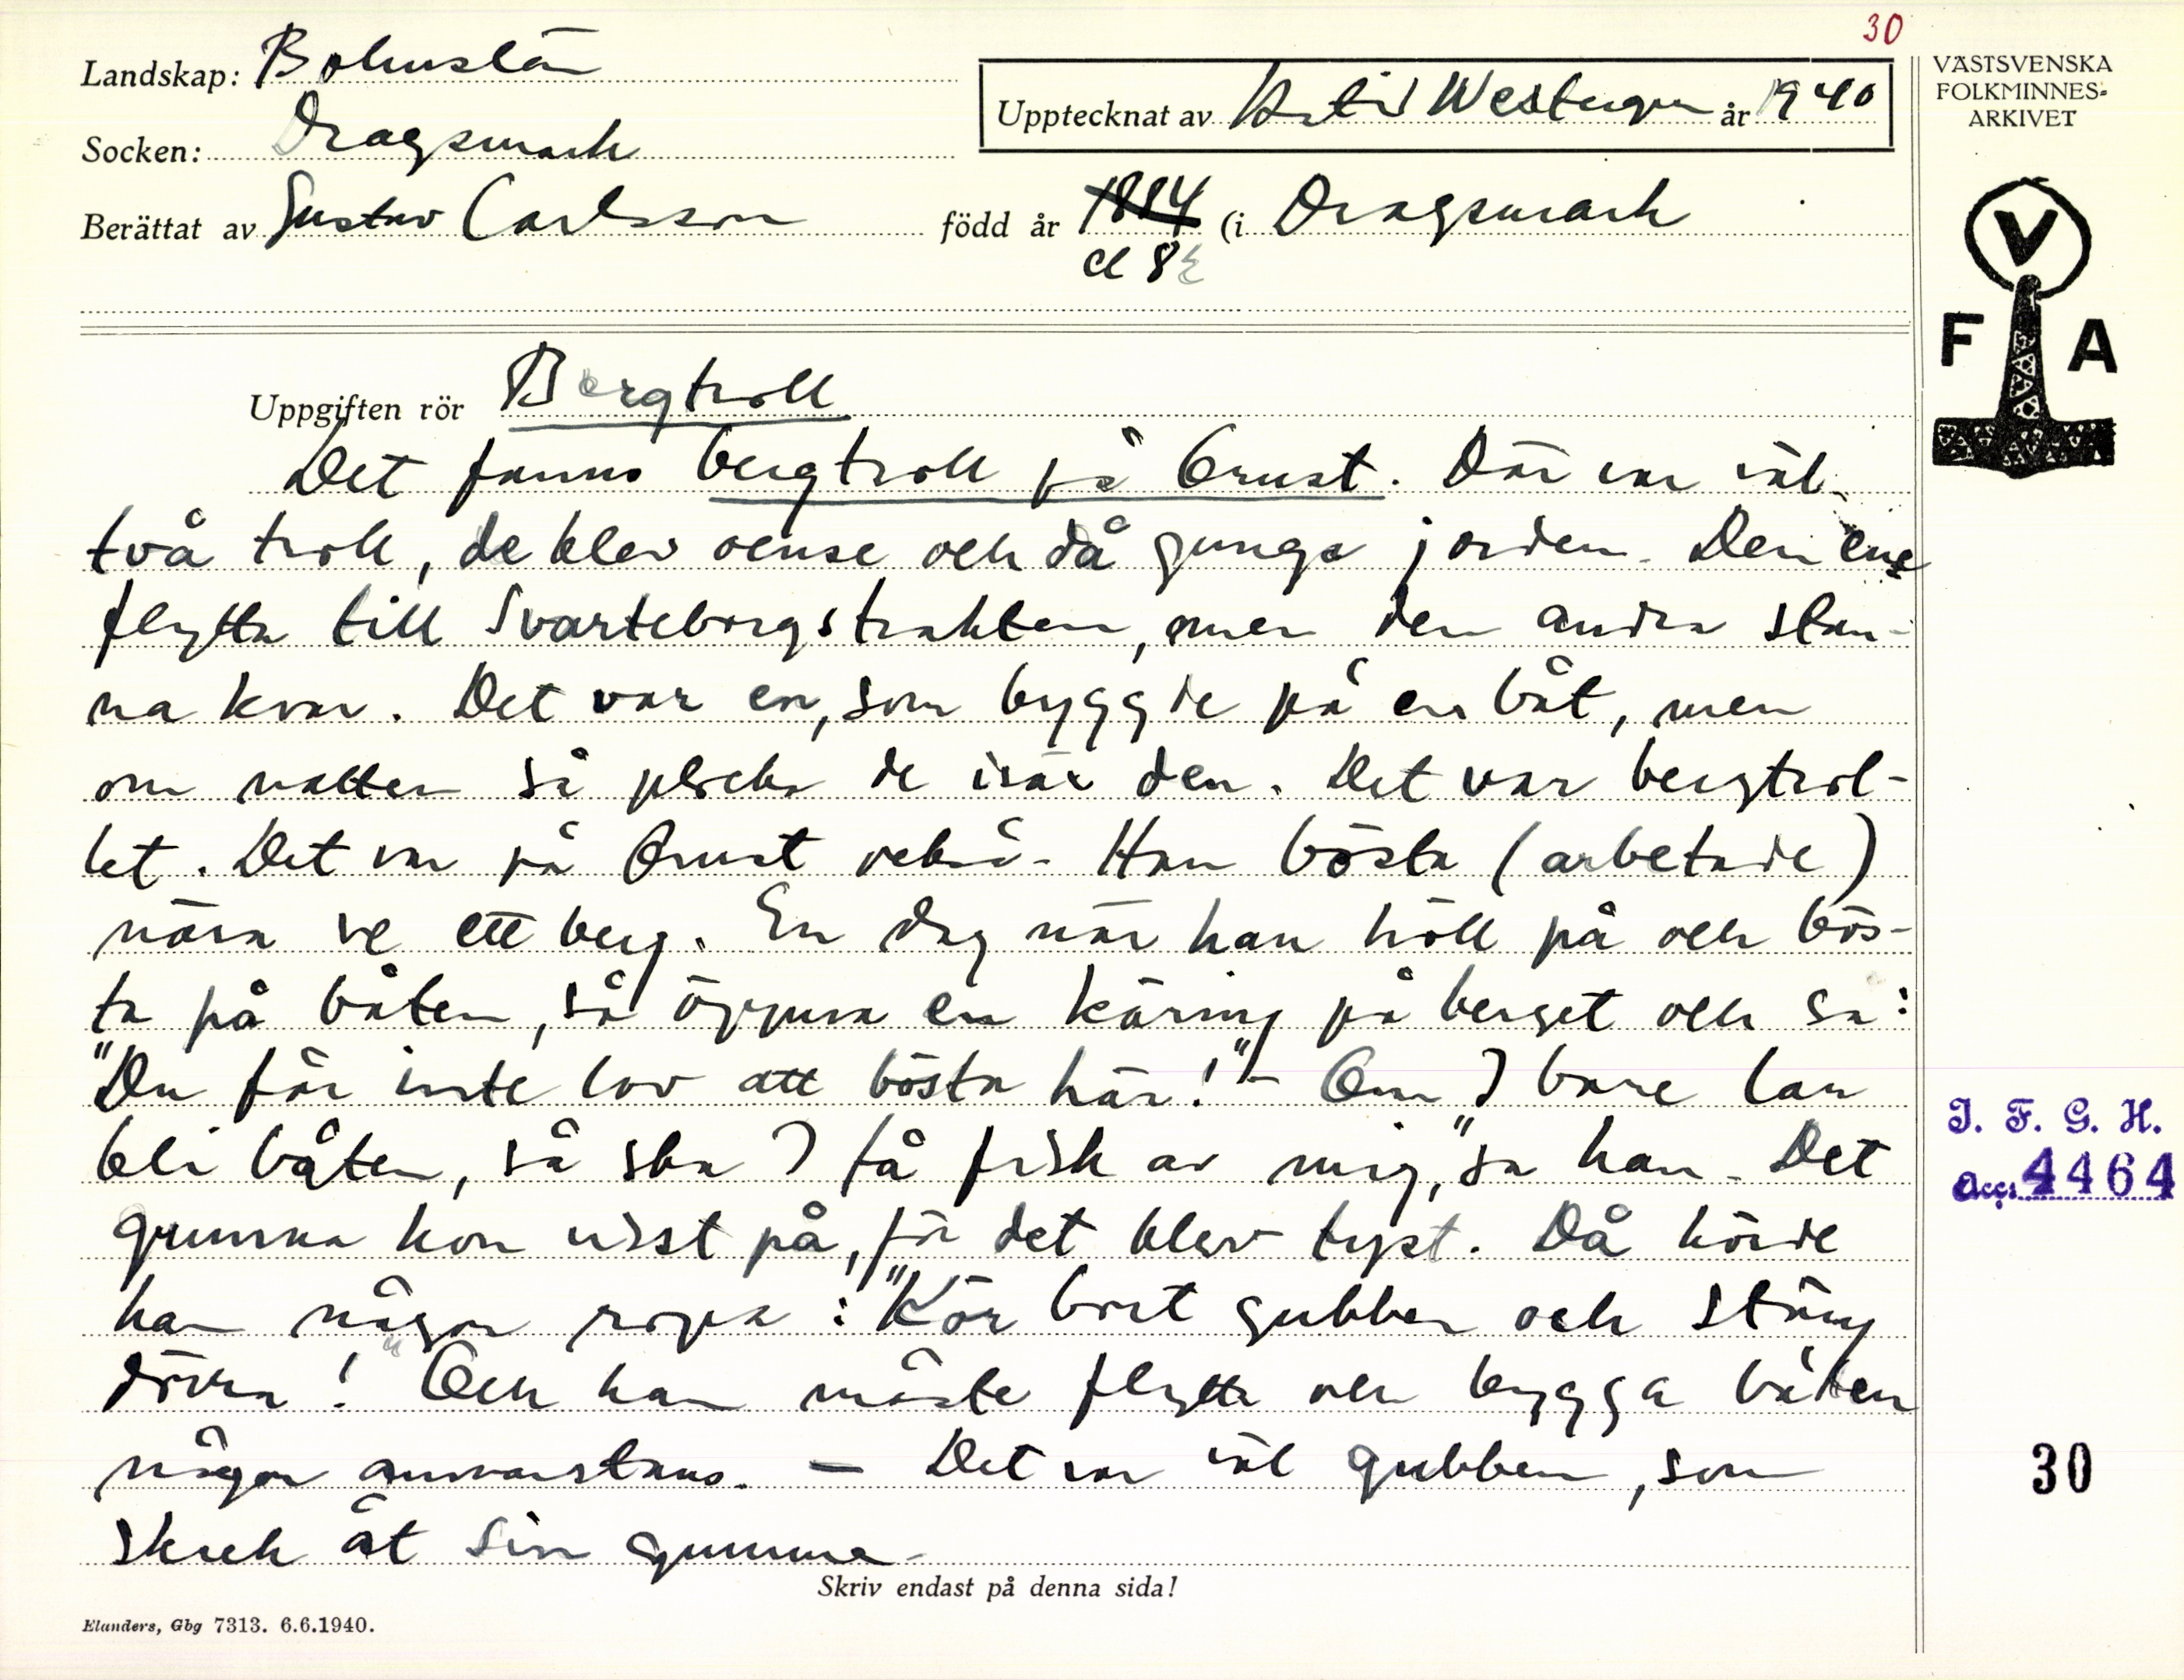 30
Landskap: Bohuslän
Upptecknat av Westergren år 1940
VÄSTSVENSKA
FOLKMINNES-
ARKIVET
Socken: Dragsmark
Berättat av Gustav Carlsson född år 1884 (i Dragsmark
V
F A
Uppgiften rör Bergtroll
Det fanns bergtroll på Orust. Där var väl
två troll, de blev oense och då gunga jorden. Den ene
flytta till Svarteborgstrakten, men den andra stan-
na kvar. Det var en, som byggde på en båt, men
om natten så plocka de isär den. Det var bergtrol-
let. Det var på Orust också. Han bösta (arbetade)
nära ve ett berg. En dag när han höll på och bös-
ta på båten, så öppna en käring på berget och sa:
"Du får inte lov att bösta här!" – Om I bare lar
bli båten, så ska I få fisk av mig," sa han. Det
grunna hon visst på, för det blev tyst. Då hörde
han någon ropa: "Kör bort gubben och stäng
dörra!" Och han måste flytta och bygga båten
någon annanstans. – Det var väl gubben, som
skrek åt sin gumma.
Skriv endast på denna sida!
Elanders, Gbg 7313. 6.6.1940.
I. F. G. H.
Acc: 4464
30